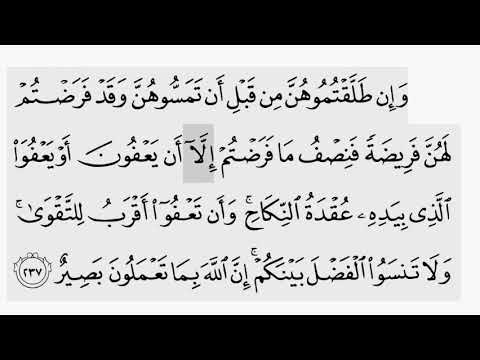 وَإِن طَلَّقْتُمُوهُنَّ مِن قَبْلِ أَن تَمَسُّوهُنَّ وَقَدْ فَرَضْتُمْ
لَهُنَّ فَرِيضَةً فَنِصْفُ مَا فَرَضْتُمْ إِلَّآ أَن يَعْفُونَ أَوْ يَعْفُوَا۟
ٱلَّذِى بِيَدِهِۦ عُقْدَةُ ٱلنِّكَاحِ ۚ وَأَن تَعْفُوٓا۟ أَقْرَبُ لِلتَّقْوَىٰ ۚ
وَلَا تَنسَوُا۟ ٱلْفَضْلَ بَيْنَكُمْ ۚ إِنَّ ٱللَّهَ بِمَا تَعْمَلُونَ بَصِيرٌ ۝٢٣٧